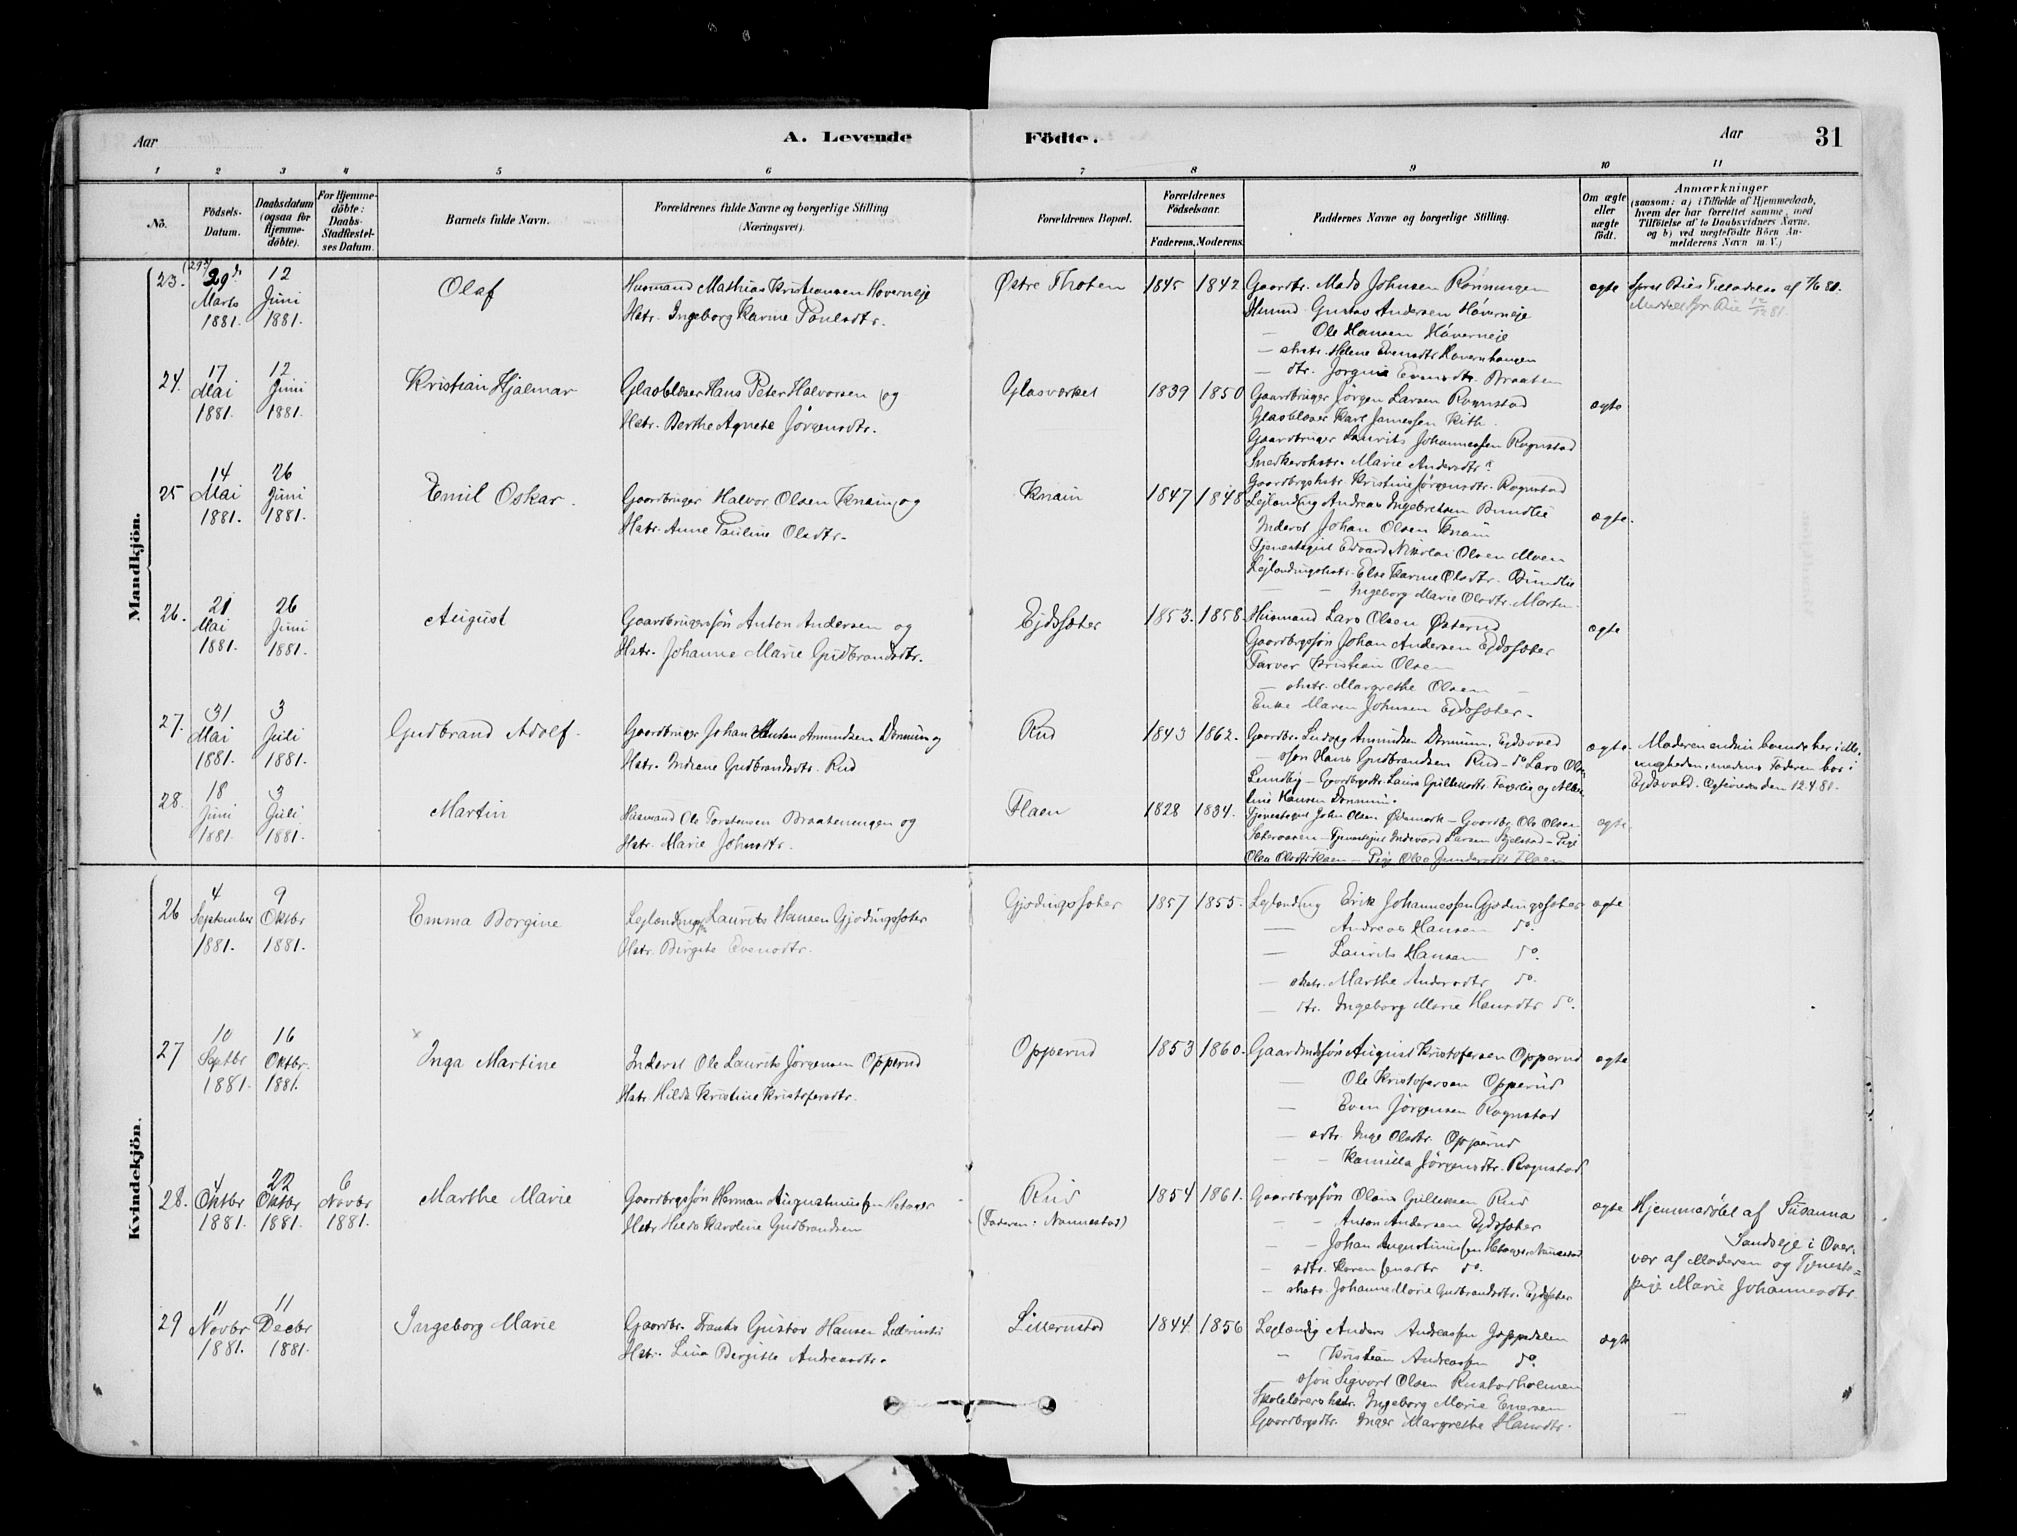 Aar
A. Levende
Födte.
Aar
31
1 2 3 4 5 6 7 8 9 10 11
No.
Födsels-Datum.
Daabsdatum (ogsaa for Hjemme-döbte).
For Hjemme-döbte: Daabs Stadfæstel-ses Datum.
Barnets fulde Navn.
Forældrenes fulde Navne og borgerlige Stilling (Næringsvei).
Forældrenes Bopæl.
Forældrenes Födselsaar.
Faderens. Moderens.
Faddernes Navne og borgerlige Stilling.
Om ægte eller uægte födt.
Anmærkninger
(saasom: a) i Tilfælde af Hjemmedaab,
hvem der har forrettet samme, med
Tilföielse af to Daabsvidners Navne,
og b) ved uægtefödte Börn An-
melderens Navn m. V.)
Mandkjön.
23. 29de Marts 1881. 12 Juni 1881. Olaf
Husmand Mathias Kristiansen Hoverneje
Hstr. Ingeborg Karine Paulsdtr.
Østre Thoten 1845 1842
Gaardbr. Mads Johnsen Rønningen
Husmd. Gustav Andersen Höverneje
— Ole Hansen Höverneje
— shstr. Helene Evensdtr Hovernhaugen
— dtr. Jørgine Evensdtr. Braaten
ægte
24. 17 Mai 1881. 12 Juni 1881. Kristian Hjalmar
Glasblæser Hans Peter Halvorsen og
Hstr. Berthe Agnete Jørgensdtr.
Glasværket 1839 1850
Gaardbruger Jørgen Larsen Rognstad
Glasblæser Karl Jamessen Kith.
Gaardbruger Laurits Johannessen Rognstad
Snedkershstr. Marie Andersdtr
Gaardbrgshstr. Kristine Jørgensdtr. Rognstad
ægte
25 14 Mai 1881. 26 Juni 1881. Emil Oskar.
Gaardbruger Halvor Olsen Knain og
Hstr. Anne Pauline Olsdtr.
Knain 1847 1848
Lejlending Andreas Ingebretsen Bundlie
Inderst Johan Olsen Knain
Tjenestegut Edvard Nikolai Olsen Moen
Lejlendingshstr. Else Karine Olsdtr. Bundlie
— — Ingeborg Marie Olsdtr.
ægte.
26. 21 Mai 1881. 26 Juni 1881. August
Gaardbrugersøn Anton Andersen og
Hstr. Johanne Marie Gudbrandsdtr.
Ejdssæter 1853. 1858.
Husmand Lars Olsen Østerud
Gaardbrgsøn Johan Andersen Ejdssæter
Farver Kristian Olsen
— shstr. Margrethe Olsen —
Enke Maren Johnsen Ejdssæter.
ægte
27. 31 Mai 1881. 3 Juli 1881. Gudbrand Adolf.
Gaardbruger Johan Anton Amundsen Dønnum og
Hstr. Indiane Gudbrandsdtr. Rud
Rud 1843 1862.
Gaardbr. Ludvig Amundsen Dønnum, Ejdsvold
— søn Hans Gudbrandsen Rud — do Lars Ols.
Lundby — Gaardbrgsdtr. Laura Gulliksdtr. og
line Hansen Dønnum.
ægte
Moderen endnu boende her i Me-
nigheden, medens Faderen bor i
Ejdsvold. Ægteviede den 12.4.81.
28. 18 Juni 1881. 3 Juli 1881. Martin
Husmand Ole Torstensen Braatenengen og
Hstr. Marie Johnsdtr.
Flaen 1828 1834.
Tjenestegut John Olsen Ødemark — Gaardbr. Ole Olsen
Sæteraasen — Tjenestegut Larsen Bjelstad — Pige
Olea Olsdtr Flaen — Pige Olea Gundersdtr Flaen
ægte
Kvindekjön.
26 4 September 1881. 9 Oktbr 1881. Emma Borgine
Lejlending Laurits Hansen Gjødingssæter
Hstr. Birgite Evensdtr.
Gjødingssæter 1857 1855.
Lejlending Erik Johannessen Gjødingssæter
— Andreas Hansen do.
— Laurits Hansen do.
— shstr. Marthe Andersdtr do.
— dtr. Ingeborg Marie Hansdtr do.
ægte
27 10 Septbr 1881. 16 Oktbr. 1881. Inga Martine
Inderst Ole Laurits Jørgensen Opperud
Hstr. Hilda Kristine Kristofersdtr.
Opperud 1853 1860.
Gaardmdsøn August Kristofersen Opperud
— Ole Kristofersen Opperud
— Even Jørgensen Rognstad
— sdtr. Inge Olsdtr. Opperud
— — Kamilla Jørgensdtr. Rognstad
ægte
28. 4 Oktbr 1881. 22 Oktbr 1881. 6 Novbr 1881. Marthe Marie
Gaardbrgsøn Herman Augustinussen Hetager
Hstr Hilda Karoline Gudbrandsen
Rud
(Faderen: Nannestad)
1854 1861.
Gaardbrgsøn Olaus Gulliksen Rud
— — Anton Andersen Ejdssæter
— — Johan Augustinussen Hetager Nannestad
— sdtr. Karen do.
— shstr. Johanne Marie Gudbrandsdtr. Ejdssæter
ægte
Hjemmedøbt af Susanna
Sandseje i Over-
vær af Moderen og Tjeneste-
pige Marie Johannesdtr
29 11 Novbr 1881. 11 Decbr 1881. Ingeborg Marie
Gaardbr. Frants Gustav Hansen
Hstr. Lina Bergitte Andreasdtr.
Lillernstad 1844 1856
Lejlending Anders Andreassen Jøppedalen
— Kristian Andreassen do.
— søn Sigvart Olsen Rustadholmen
Skolelærershstr. Ingeborg Marie Enersen
Gaardbrgsdtr. Inger Margrethe Hansdtr.
ægte